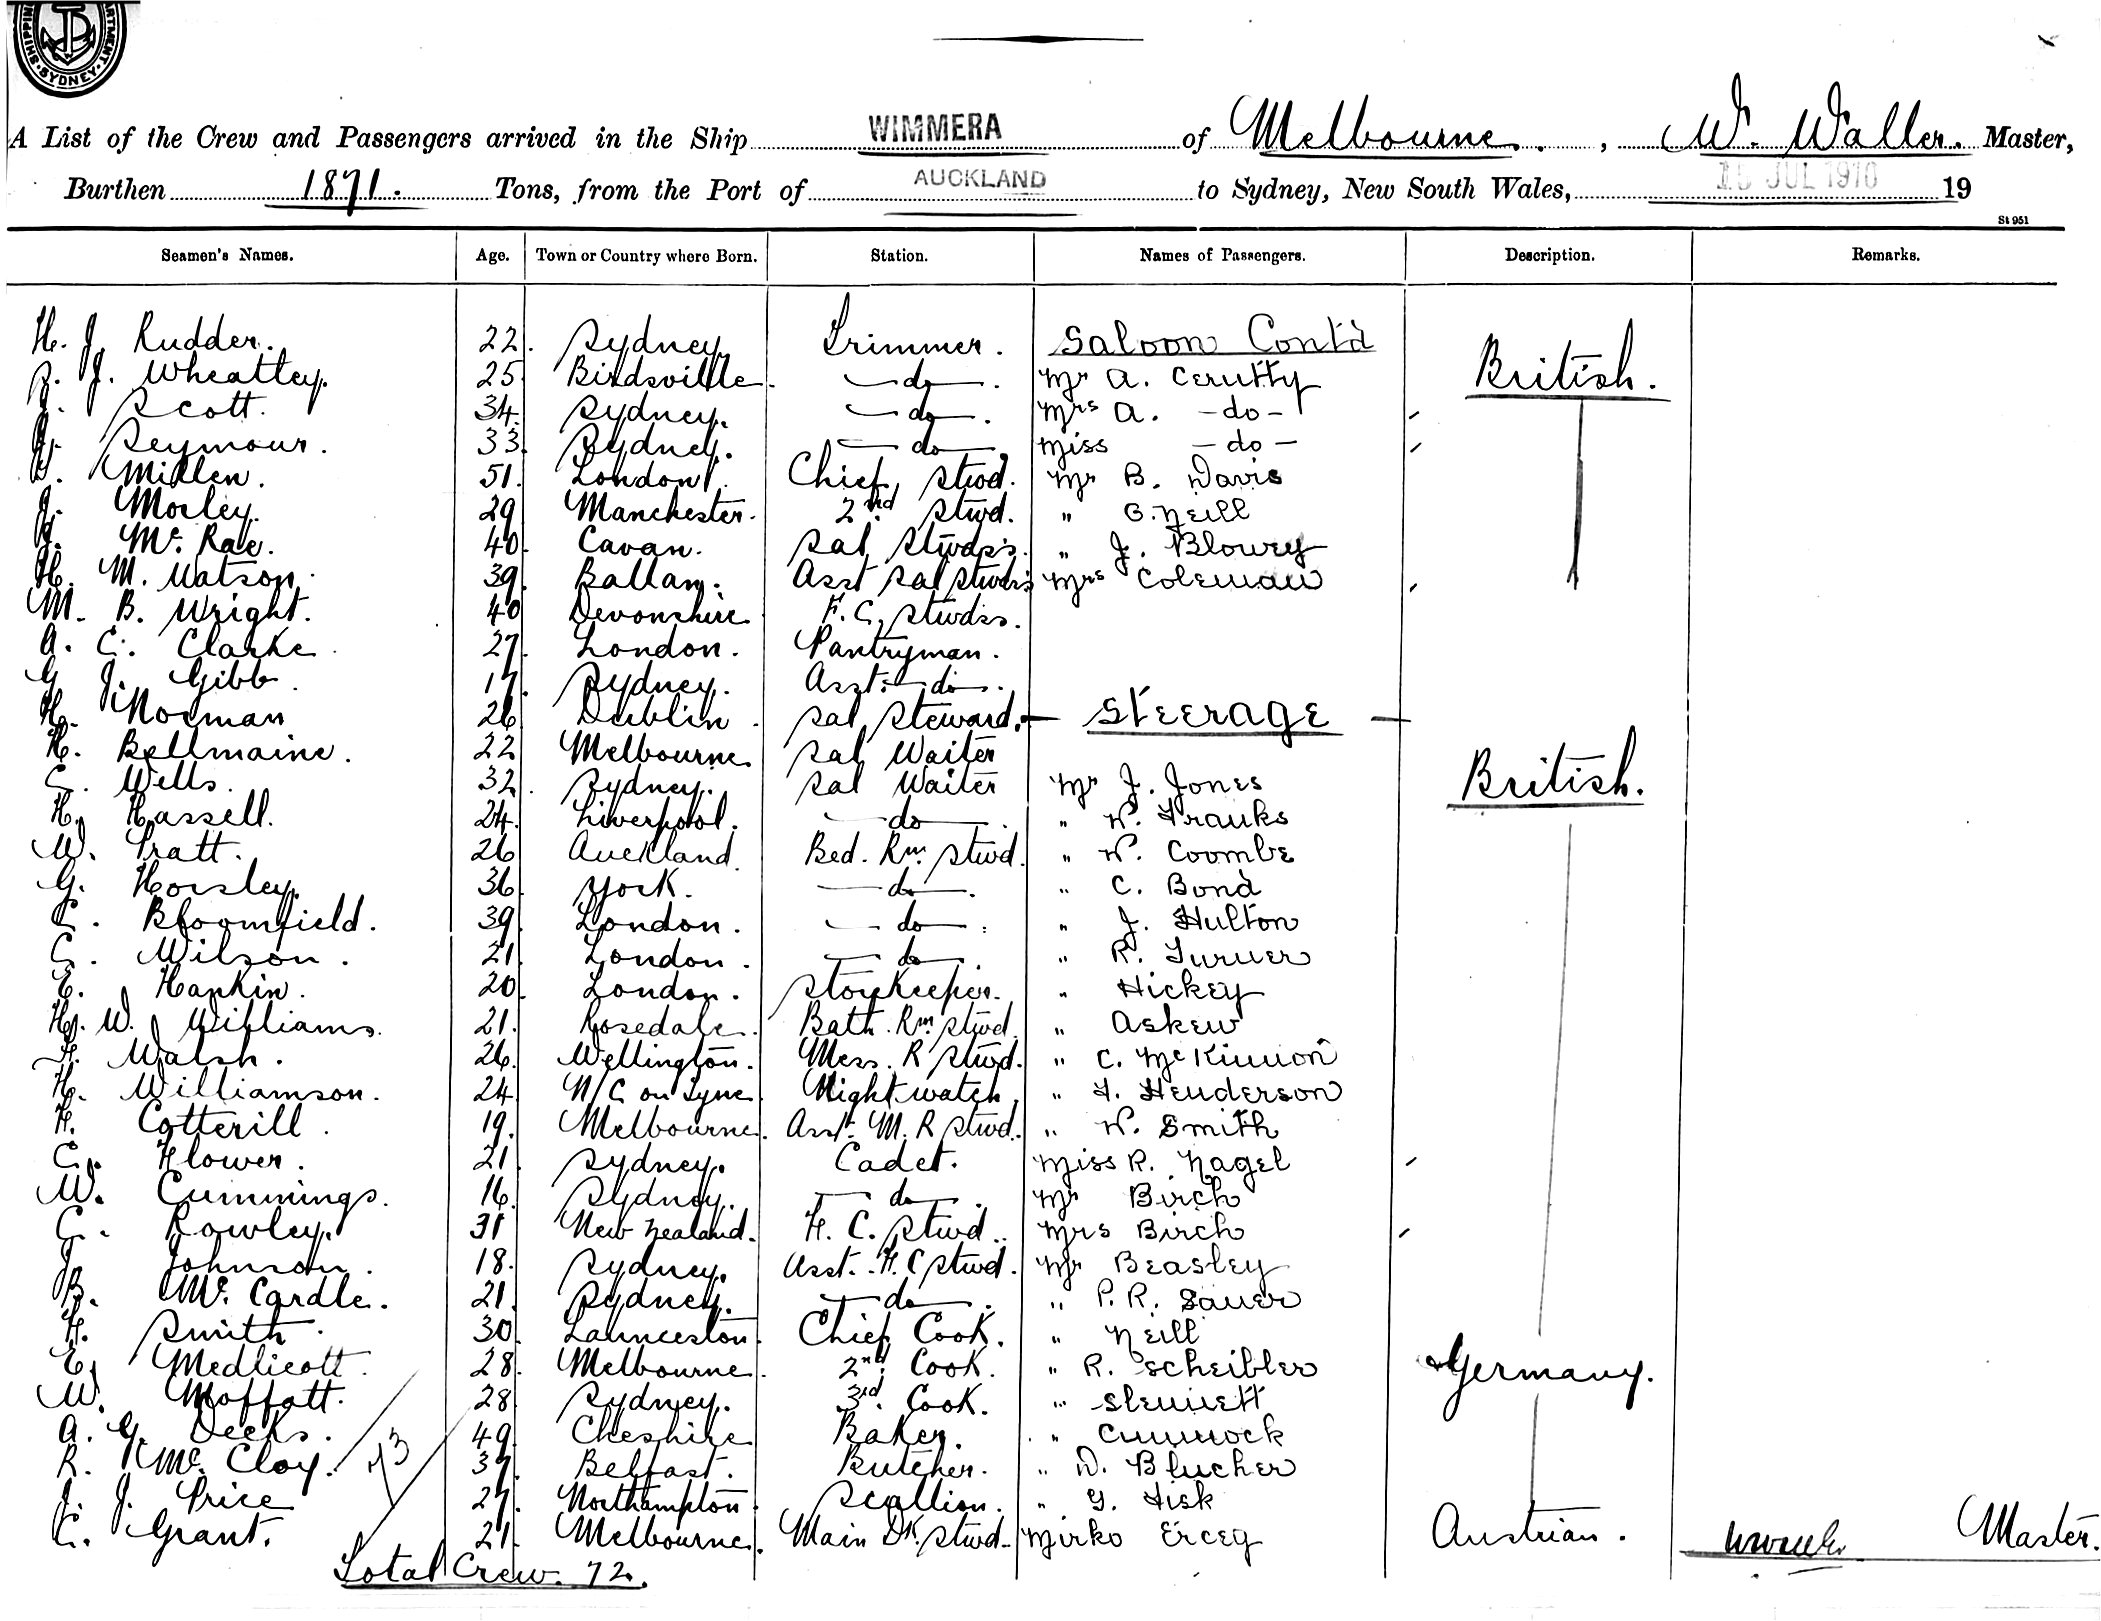 SHIPPING DEPARTMENT. SYDNEY.
A List of the Crew and Passengers arrived in the Ship WIMMERA of Melbourne. , W. Waller. Master,
Burthen 1871. Tons, from the Port of AUCKLAND to Sydney, New South Wales, 15 JUL 1910 19
St 951
Seamen's Names. Age. Town or Country where Born. Station. Names of Passengers. Description. Remarks.
H. J. Rudder. 22. Sydney. Trimmer. Saloon Contd
J. Wheatley. 25 Birdsville. -do-. Mr A. Cerutty British.
Scott. 34. Sydney. -do-. Mrs A. -do-
Seymour. 33 Sydney. -do- Miss -do-
Millen. 51. London. Chief Stwd. Mr B. Davis
J. Morley. 29 Manchester. 2nd Stwd. " O.Neill
Mc. Rae. 40. Cavan. Sal Stwdss. " J. Blowey
H. M. Watson. 39. Ballan. Asst Sal Stwdss Mrs Coleman
M. B. Wright. 40 Devonshire F. C. Stwdss.
A. C. Clarke. 27. London. Pantryman.
G. J. Gibb. 17. Sydney. Asst. -do-.
H. Norman 26 Dublin. Sal Steward. - Steerage -
H. Bellmaine. 22 Melbourne. Sal Waiter
C. Wells. 32. Sydney. Sal Waiter Mr J. Jones British.
H. Hassell. 24. Liverpool. -do-. " W. Franks
W. Pratt. 26 Auckland. Bed. Rm. Stwd. " W. Coombe
G. Horsley. 36 York. -do-. " C. Bond
C. Bloomfield. 39. London. -do-. " J. Hulton
C. Wilson. 21. London. -do-. " R. Turner
E. Hankin. 20. London. Storekeeper. " Hickey
H. W. Williams. 21. Rosedale. Bath. Rm. Stwd. " Askew
F. Walsh. 26. Wellington. Mess. R Stwd. " C. McKinnon
H. Williamson. 24 N/C on Tyne Night watch. " F. Henderson
F. Cotterill. 19. Melbourne. Asst. M. R Stwd. " W. Smith
C. Flower. 21 Sydney. Cadet. Miss R. Nagel
W. Cummings. 16. Sydney. -do-. Mr Birch
C. Rowley. 31 New Zealand. F. C. Stwd.. Mrs Birch
J. Johnson. 18. Sydney. Asst. F. C Stwd. Mr Beasley
B. Mc. Cardle. 21. Sydney. -do-. " P. R. Sauer
F. Smith. 30. Launceston. Chief Cook. " Neill
E. Medlicott. 28. Melbourne. 2nd. Cook. " R. Scheibler Germany.
W. Moffatt. 28 Sydney. 3rd. Cook. " Slennett
A. G. Deeks. 49 Cheshire Baker. " Cimmock
R. Mc. Cloy. 37. Belfast. Butcher. " D. Blucher
J. J. Price 27. Northampton. Scullion. " G. Fisk
C. Grant. 21. Melbourne. Main Dk. Stwd. Mirko Erceg Austrian. Master.
Total Crew. 72.